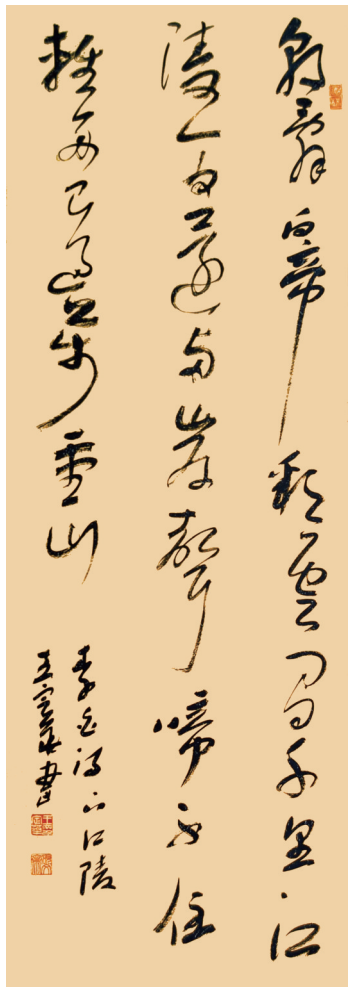 朝辭白帝彩雲間千里江
陵一日還两岸聲啼不住
輕舟已過萬重山
李白詩下江陵